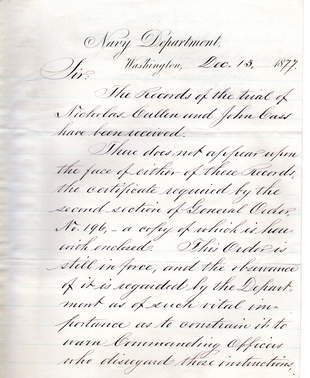 Navy Department.
Washington, Dec. 13, 1877.
Sir:
The Records of the trial of
Nicholas Cullen and John Cass
have been received.
There does not appear upon
the face of either of these Records,
the certificate required by the
second section of General Order,
No. 196,- a copy of which is here-
with enclosed. This Order is
still in force, and the observance
of it is regarded by the Depart-
ment as of such vital im-
portance as to constrain it to
warn Commanding Officers
who disregard those instructions,